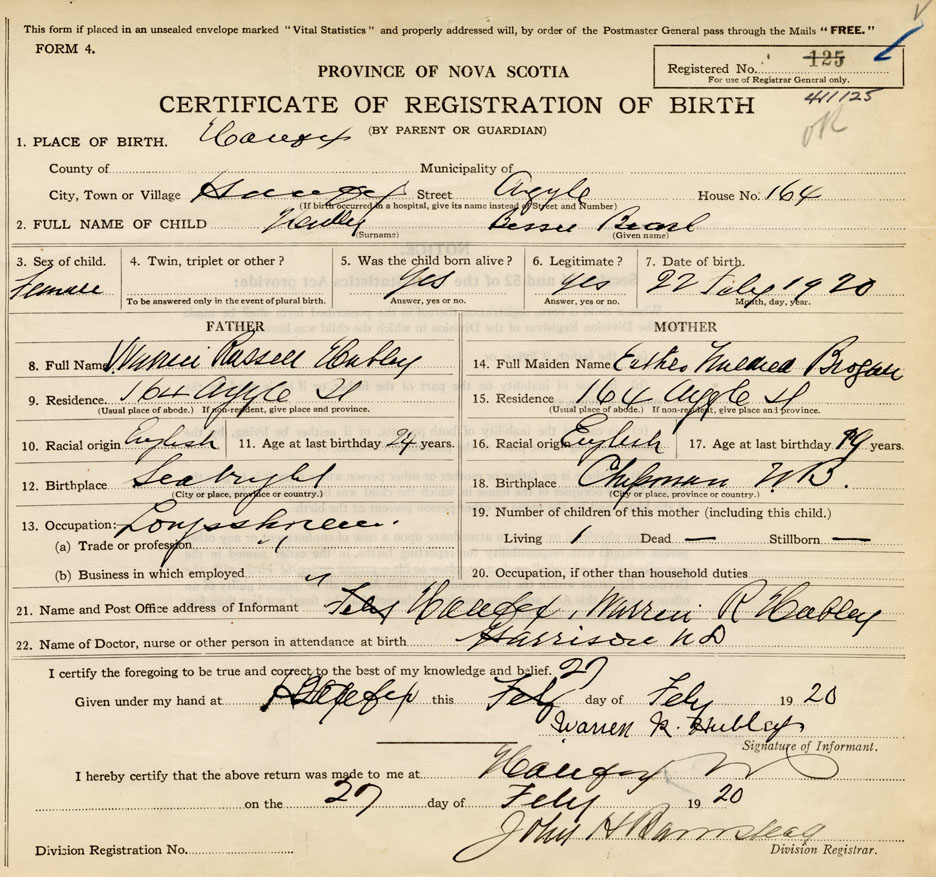 This form if placed in an unsealed envelope marked "Vital Statistics" and properly addressed will, by order of the Postmaster General pass through the Mails "FREE."
FORM 4.
Registered No. 125
For use of Registrar General only.
411125
OK
PROVINCE OF NOVA SCOTIA
CERTIFICATE OF REGISTRATION OF BIRTH
(BY PARENT OR GUARDIAN)
1. PLACE OF BIRTH. Halifax
County of Municipality of
City, Town or Village Halifax Street Argyle House No. 164
(If birth occurred in a hospital, give its name instead of Street and Number)
2. FULL NAME OF CHILD Hubley Bessie Pearl
(Surname) (Given name)
3. Sex of child. 4. Twin, triplet or other? 5. Was the child born alive? 6. Legitimate? 7. Date of birth.
Female Yes yes 22 Feby 1920
To be answered only in the event of plural birth. Answer, yes or no. Answer, yes or no. Month, day, year.
FATHER
8. Full Name Warren Russell Hubley
9. Residence. 164 Argyle St
(Usual place of abode.) If non-resident, give place and province.
10. Racial origin English 11. Age at last birthday 24 years.
12. Birthplace Seabright
(City or place, province or country.)
13. Occupation: Longshoreman.
(a) Trade or profession
(b) Business in which employed "
MOTHER
14. Full Maiden Name Esther Mildred Brogan
15. Residence 164 Argyle St
(Usual place of abode.) If non-resident, give place and province.
16. Racial origin English 17. Age at last birthday 19 years.
18. Birthplace Chipman N.B.
(City or place, province or country.)
19. Number of children of this mother (including this child.)
Living 1 Dead — Stillborn —
20. Occupation, if other than household duties
21. Name and Post Office address of Informant Feby Halifax, Warren R Hubley
22. Name of Doctor, nurse or other person in attendance at birth Harrison M D
I certify the foregoing to be true and correct to the best of my knowledge and belief.
27
Given under my hand at Halifax this Feby day of Feby 1920
Warren R. Hubley
Signature of Informant.
I hereby certify that the above return was made to me at Halifax
on the 27 day of Feby 1920
John H
Division Registration No. Division Registrar.